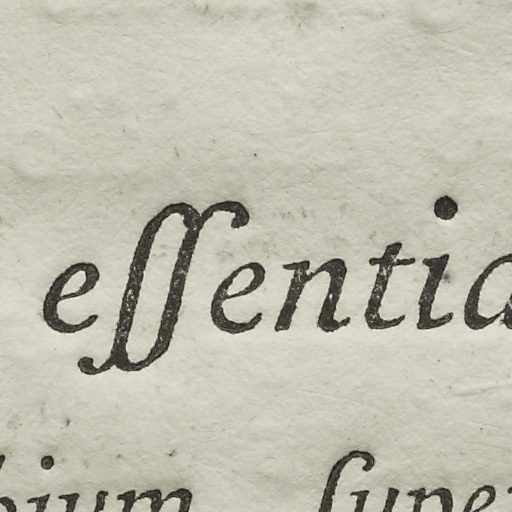 eſſentia
bium ſuper